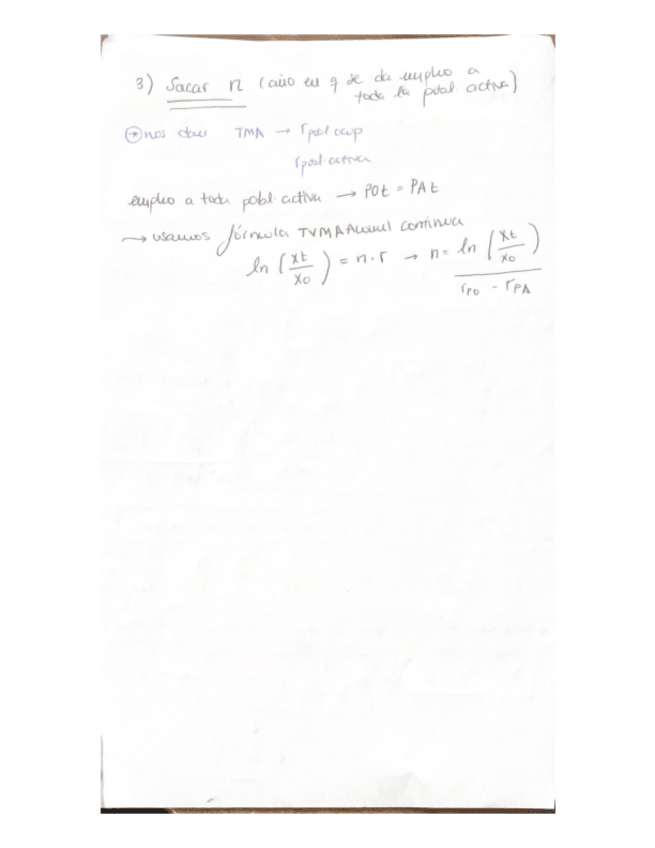 3) Sacar n (año en q se da empleo a
toda la pobl activa)
→ nos dan TMA → r pobl ocup
r pobl. activa
empleo a toda pobl. activa → POt = PAt
→ usamos fórmula TVMA Anual continua
ln (Xt/X0) = n · r → n = ln (Xt/X0) / rPO - rPA